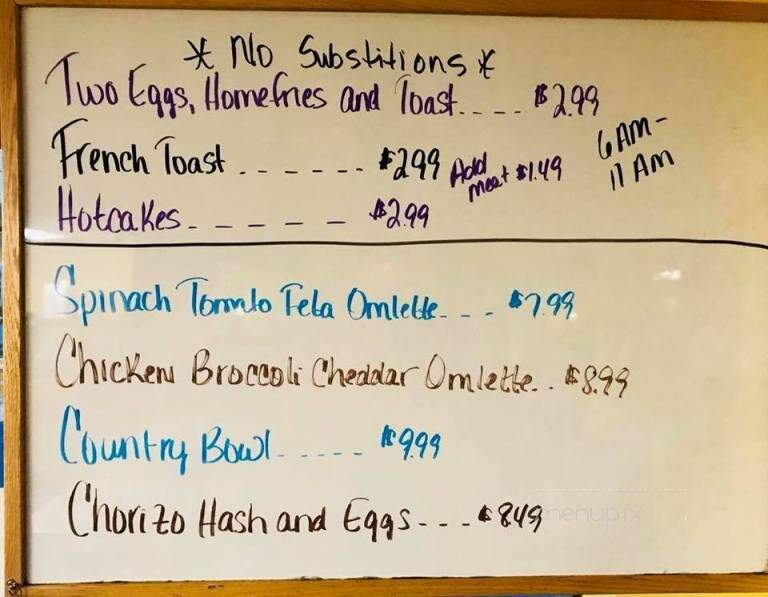 * No Substitions *
Two Eggs, Homefries and Toast.... $2.99
French Toast ------ $2.99 Add meat $1.49
6 AM - 11 AM
Hotcakes ----- $2.99
Spinach Tomato Feta Omlette--- $7.99
Chicken Broccoli Cheddar Omlette.. $8.99
Country Bowl...... $9.99
Chorizo Hash and Eggs--- $8.49
menupix